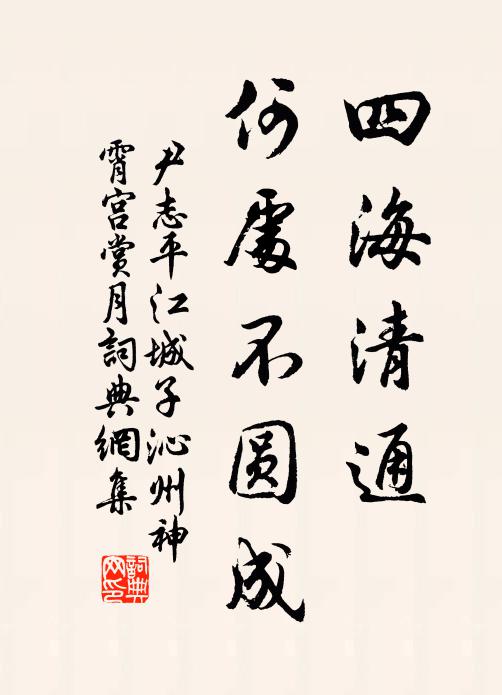 四海清通
何處不圆成
尹志平江城子沁州神
霄宫赏月詞典網集
詞典
网印